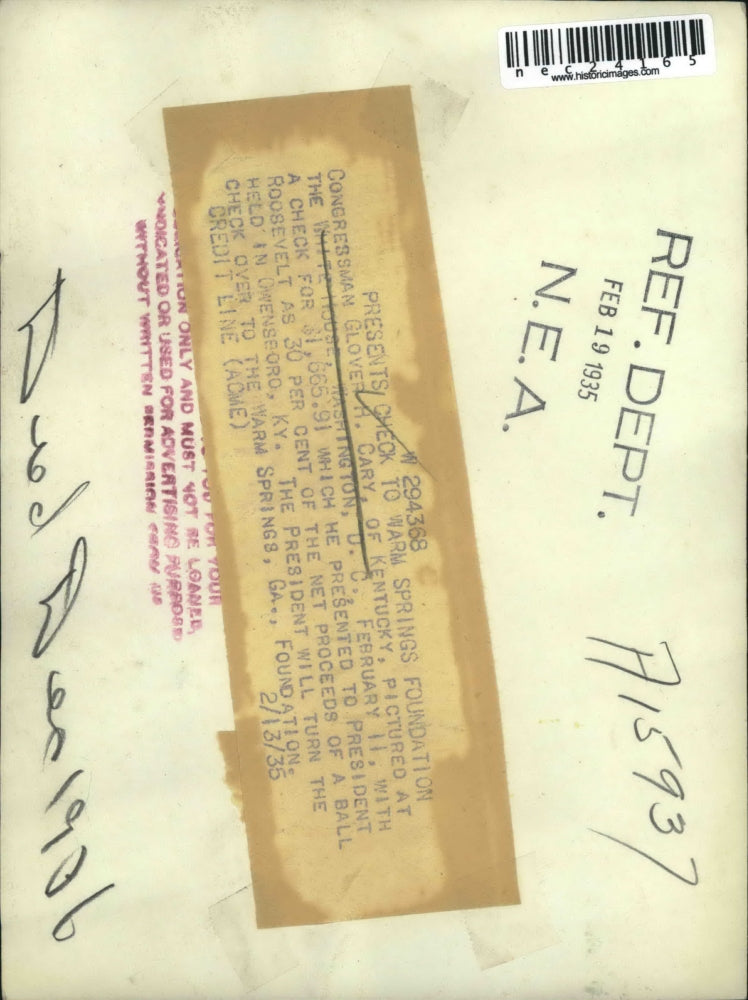 nec24165
www.historicimages.com
REF. DEPT.
FEB 19 1935
N.E.A.
A15937
W 294368
PRESENTS CHECK TO WARM SPRINGS FOUNDATION
CONGRESSMAN GLOVER H. CARY OF KENTUCKY, PICTURED AT
THE WHITE HOUSE, WASHINGTON, D. C., FEBRUARY 11, WITH
A CHECK FOR $1,665.91 WHICH HE PRESENTED TO PRESIDENT
ROOSEVELT AS 30 PER CENT OF THE NET PROCEEDS OF A BALL
HELD IN OWENSBORO, KY. THE PRESIDENT WILL TURN THE
CHECK OVER TO THE WARM SPRINGS, GA., FOUNDATION.
CREDIT LINE (ACME) 2/13/35
YOU FOR YOUR
ONLY AND MUST NOT BE LOANED,
SYNDICATED OR USED FOR ADVERTISING PURPOSES
WITHOUT WRITTEN PERMISSION FROM US
Died Dec 1936